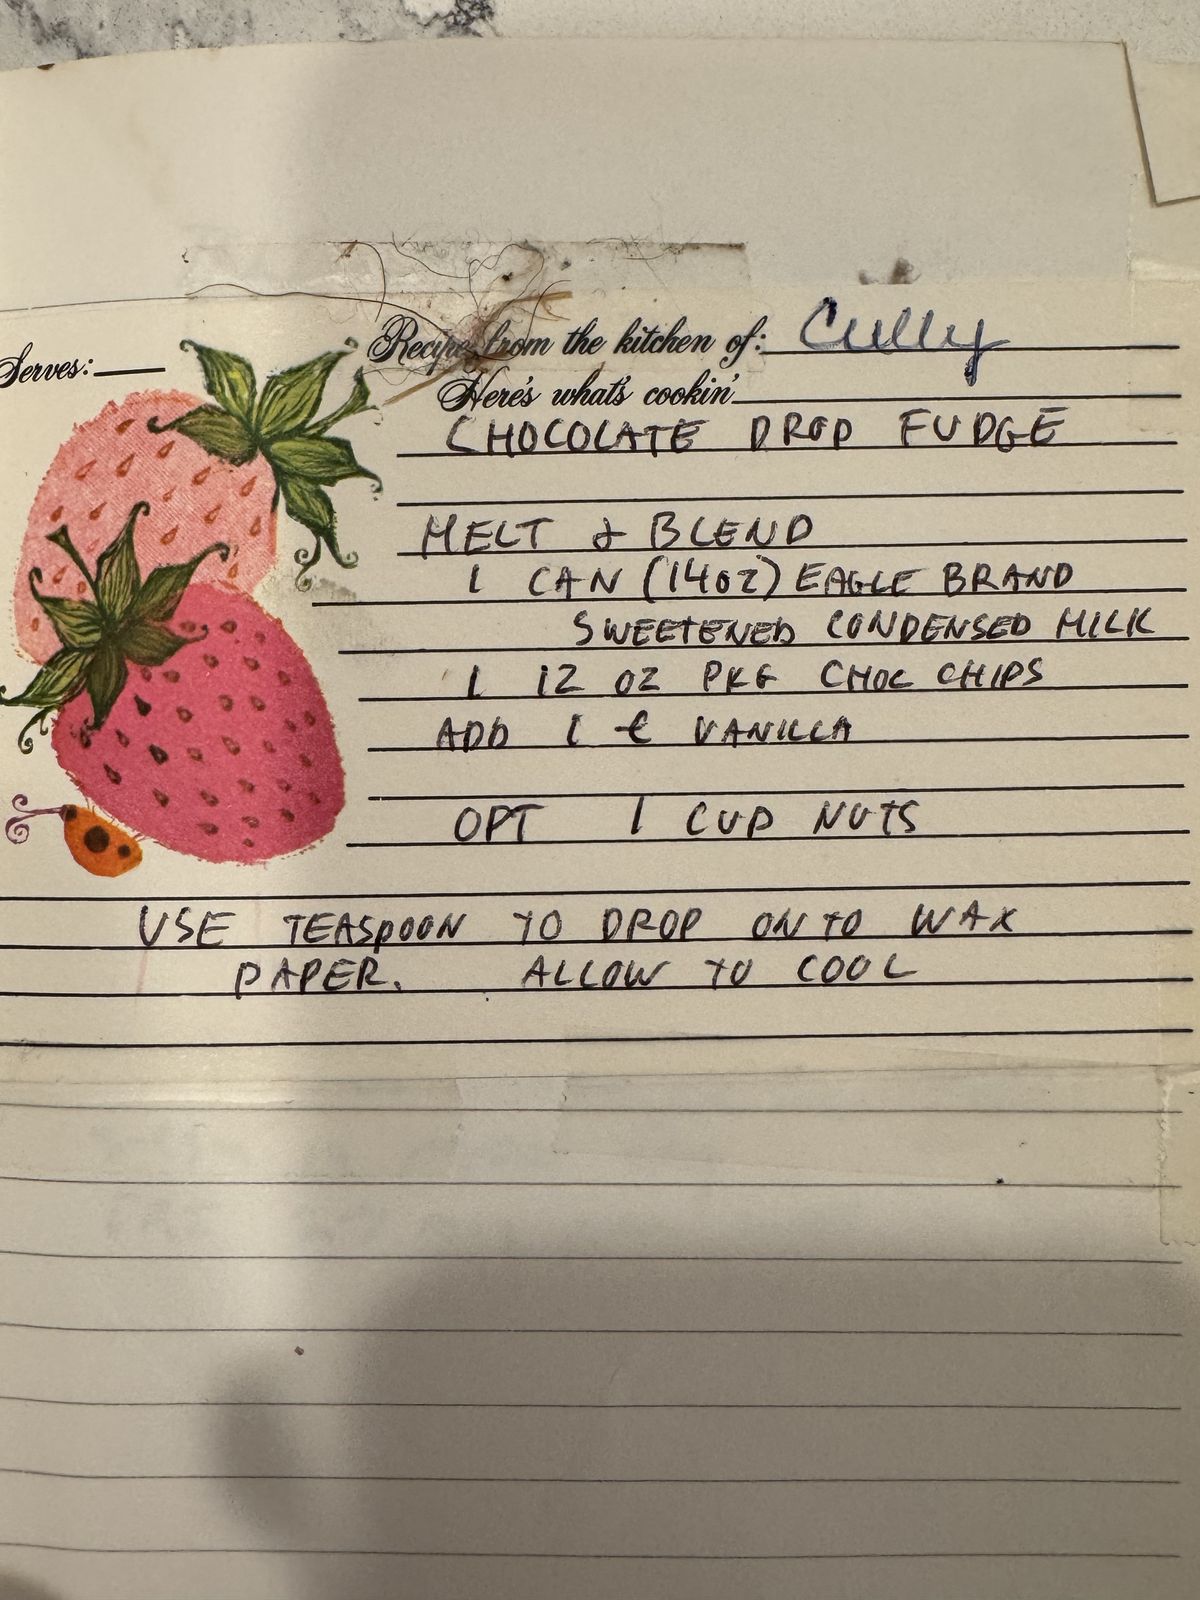 Serves:
Recipe from the kitchen of: Cully
Here's what's cookin'
CHOCOLATE DROP FUDGE
MELT & BLEND
1 CAN (14 OZ) EAGLE BRAND
SWEETENED CONDENSED MILK
1 12 OZ PKG CHOC CHIPS
ADD 1 t VANILLA
OPT 1 CUP NUTS
USE TEASPOON TO DROP ONTO WAX
PAPER. ALLOW TO COOL